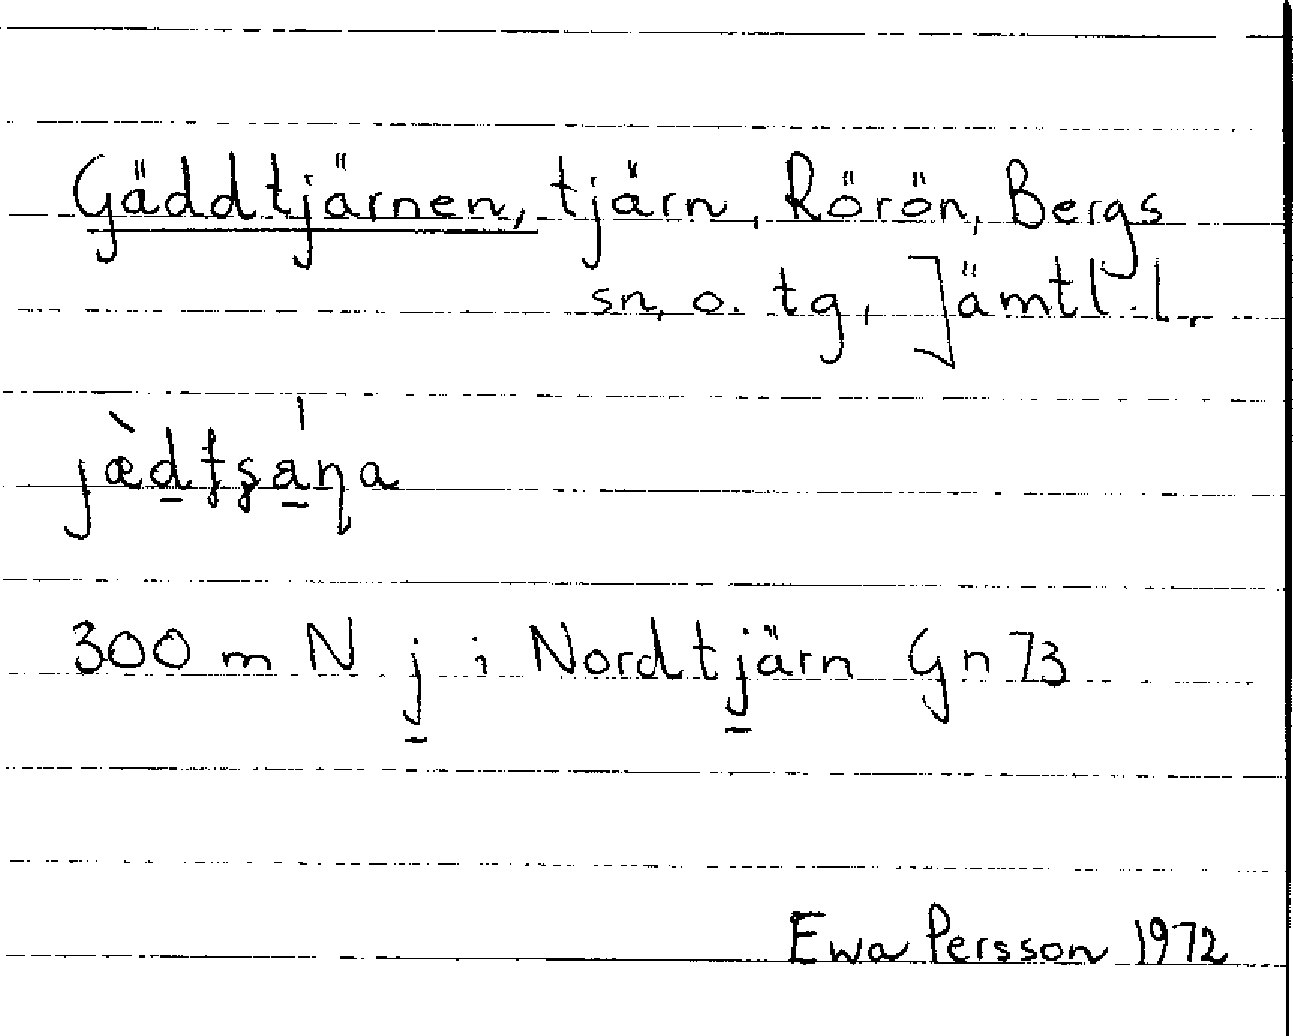 Gäddtjärnen, tjärn, Rörön, Bergs
sn, o. tg, Jämtl. l.
300 m N j i Nordtjärn Gn 73
Ewa Persson 1972